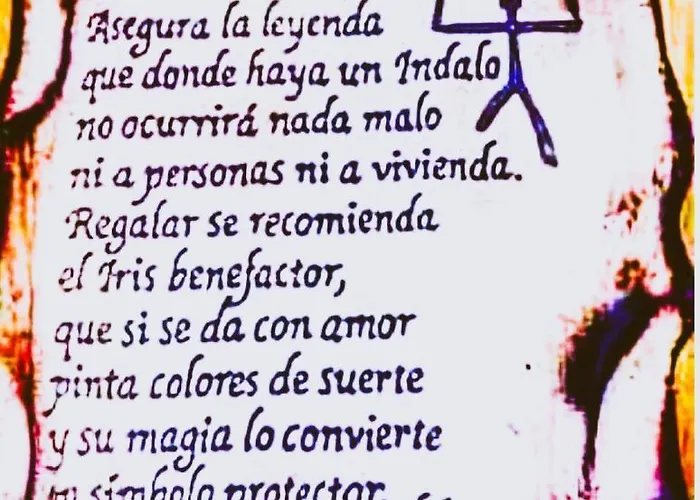 Asegura la leyenda
que donde haya un Indalo
no ocurrirá nada malo
ni a personas ni a vivienda.
Regalar se recomienda
el Iris benefactor,
que si se da con amor
pinta colores de suerte
y su magia lo convierte
símbolo protector